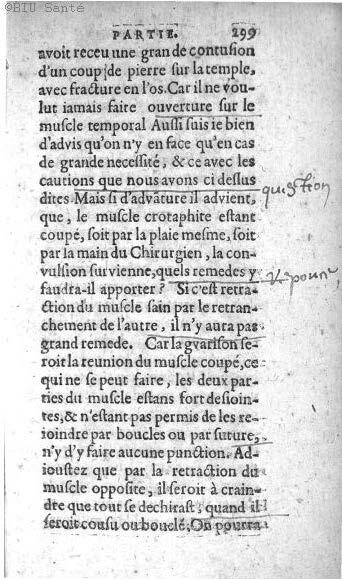 ©BIU Santé
PARTIE. 299
avoit receu une grande contusion
d'un coup de pierre sur la temple,
avec fracture en l'os. Car il ne vou-
lut iamais faire ouverture sur le
muscle temporal Aussi suis ie bien
d'advis qu'on n'y en face qu'en cas
de grande necessité, & ce avec les
cautions que nous avons ci dessus
dites Mais si d'advãture il advient, question
que, le muscle crotaphite estant
coupé, soit par la plaie mesme, soit
par la main du Chirurgien, la con-
vulsion survienne, quels remedes y
faudra-il apporter? Si c'est retra-
ction du muscle sain par le retran-
chement de l'autre, il n'y aura pas
grand remede. Car la gvarison se-
roit la reunion du muscle coupé, ce
qui ne se peut faire, les deux par-
ties du muscle estans fort desioin-
tes, & n'estant pas permis de les re-
ioindre par boucles ou par suture,
n'y d'y faire aucune punction. Ad-
ioustez que par la retraction du
muscle opposite, il seroit à crain-
dre que tout se dechirast, quand il
seroit cousu ou bouclé; On pourra